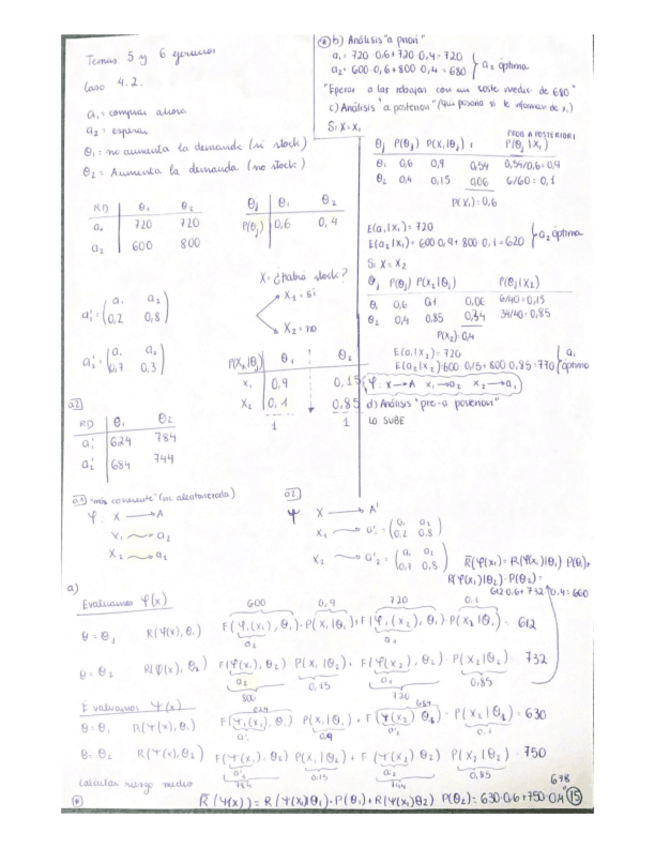 Temas 5 y 6 ejercicios
Caso 4.2.
a₁ = comprar ahora
a₂ = esperar
θ₁ = no aumenta la demanda (si stock)
θ₂ = Aumenta la demanda (no stock)
RD | θ₁ θ₂
a₁ | 720 720
a₂ | 600 800
θj | θ₁ θ₂
P(θj) | 0,6 0,4
X = ¿habrá stock?
X₁ = si
X₂ = no
a₁' = (a₁ a₂ / 0,2 0,8)
a₂' = (a₁ a₂ / 0,7 0,3)
P(Xk|θj) | θ₁ θ₂
X₁ | 0,9 0,15
X₂ | 0,1 0,85
1 1
a2
RD | θ₁ θ₂
a₁' | 624 784
a₂' | 684 744
b) Análisis "a priori"
a₁ = 720·0,6 + 720·0,4 = 720
a₂ = 600·0,6 + 800·0,4 = 680 } a₂ óptima
"Eperar a las rebajas con un coste medio de 680"
c) Análisis "a posteriori" (que pasaria si te informan de x,)
Si X = X₁
PROB A POSTERIORI
θj P(θj) P(X₁|θj) P(θj|X₁)
θ₁ 0,6 0,9 0,54 0,54/0,6 = 0,9
θ₂ 0,4 0,15 0,06 6/60 = 0,1
P(X₁) = 0,6
E(a₁|X₁) = 720
E(a₂|X₁) = 600·0,9 + 800·0,1 = 620 } a₂ óptima
Si X = X₂
θj P(θj) P(X₂|θj) P(θj|X₂)
θ₁ 0,6 0,1 0,06 6/40 = 0,15
θ₂ 0,4 0,85 0,34 34/40 = 0,85
P(X₂) = 0,4
E(a₁|X₂) = 720
E(a₂|X₂) = 600·0,15 + 800·0,85 = 770 } a₁ óptimo
φ: X → A x₁ → a₂ x₂ → a₁
d) Análisis "pre-a posteriori"
LO SUBE
"más coherente" (sin aleatorizada)
φ: X → A
X₁ → a₂
X₂ → a₁
a2
Ψ X → A'
X₁ → a₁' = (a₁ a₂ / 0,2 0,8)
X₂ → a₂' = (a₁ a₂ / 0,7 0,8)
a)
Evaluamos φ(x)
R̄(φ(x)) = R(φ(x)|θ₁)·P(θ₁) +
R(φ(x)|θ₂)·P(θ₂) =
612·0,6 + 732·0,4 = 660
600 0,9 720 0,1
θ = θ₁ R(φ(x), θ₁) F(φ(x₁), θ₁)·P(X₁|θ₁) + F(φ(x₂), θ₁)·P(X₂|θ₁) = 612
a₂ a₁
θ = θ₂ R(φ(x), θ₂) F(φ(x₁), θ₂) P(X₁|θ₂) + F(φ(x₂), θ₂)·P(X₂|θ₂) 732
a₂ 0,15 a₁ 0,85
800 720
Evaluamos Ψ(x)
624 684
θ = θ₁ R(Ψ(x), θ₁) F(Ψ(x₁), θ₁) P(X₁|θ₁) + F(Ψ(x₂) θ₁)·P(X₂|θ₁) = 630
a₁' 0,9 a₂' 0,1
θ = θ₂ R(Ψ(x), θ₂) F(Ψ(x₁), θ₂) P(X₁|θ₂) + F(Ψ(x₂) θ₂) P(X₂|θ₂) = 750
a₁' 0,15 a₂' 0,85
784 744
Calcular riesgo medio
678
R̄(Ψ(x)) = R(Ψ(x)|θ₁)·P(θ₁) + R(Ψ(x)|θ₂) P(θ₂) = 630·0,6 + 750·0,4
15